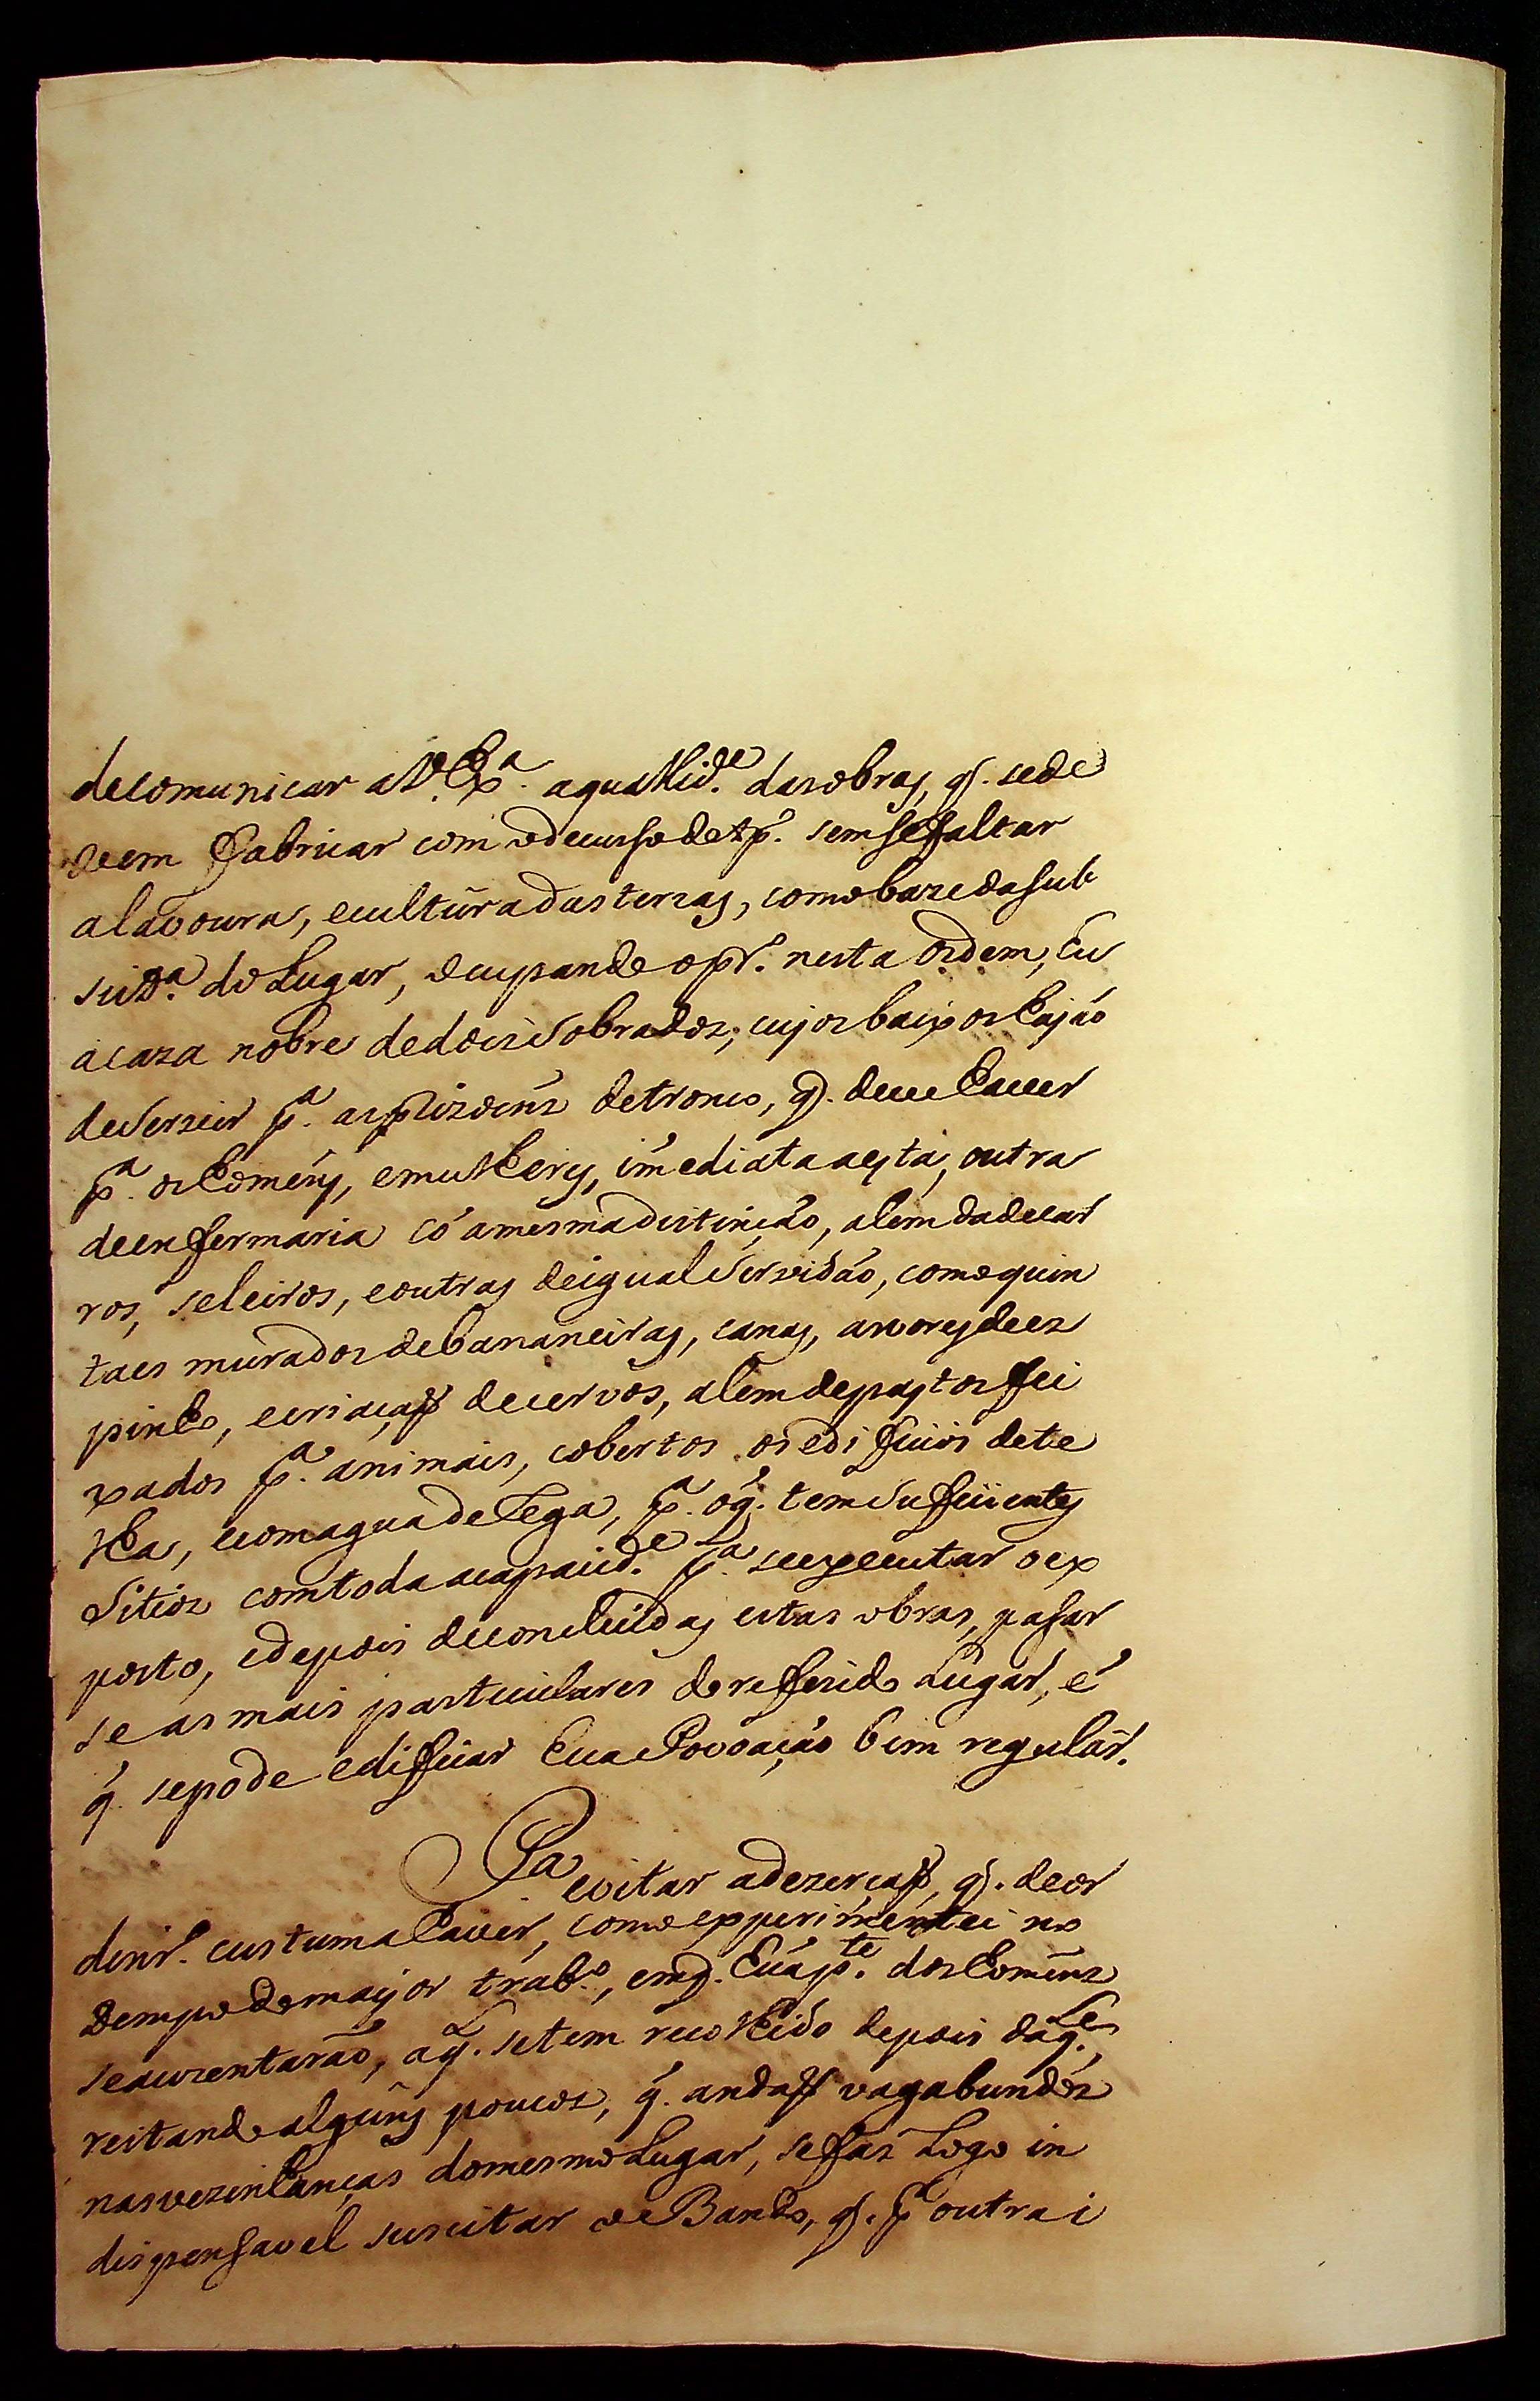 de comunicar a V. Exª. a qualid.e das obras, q̃. se de
vem fabricar com o decurso de tp.º sem se faltar
a lavoura, e cultura das terras, como baze da sub
sist.ª do Lugar, ocupando o pr.º nesta ordem, hũ
a caza nobre de dois sobrados, cujos baixos hajão
de servir p.ª as prizoens de tronco, q̃. deve haver
p.ª os homẽns, e mulheres, imediata a esta, outra
de enfermaria cõ a mesma distinção, alem da de car
ros, seleiros, e outras de igual servidão, como quin
taes murados de bananeiras, canas, arvores de es
pinho, e criaçaõ de cervos, alem de pastos fei
xados p.ª animais, cobertos os edificios de te
lha, e com agua de Lega, p.ª o q̃. tem suficientes
sitios com toda a capacid.e p.ª se executar o ex
posto, e depois de concluidas estas obras, pasar
se as mais particulares do referido Lugar, é
q̃. se pode edificar hua Povoação bem regular.
P.ª evitar a dezerçaõ, q̃. de or
dinr.º custuma haver, como experimentei no
tempo do mayor trab.º, em q̃. hũa p.te dos homẽns
se auzentarão, a q̃.L se tem recolhido depois daq.Les,
restando alguns poucos, q̃. andaõ vagabundos
nas vezinhanças do mesmo Lugar, se fas Logo in
dispensavel suscitar o Bando, q̃. p.r outra i